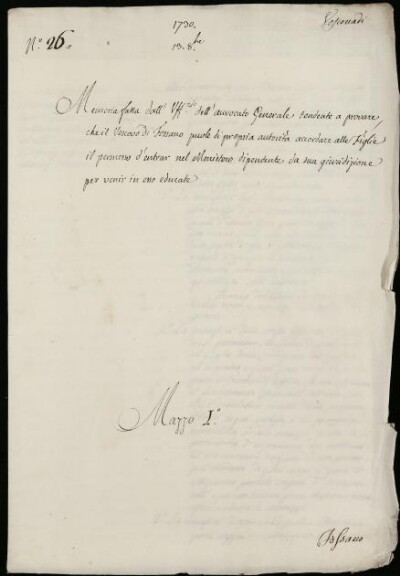 1730.
13. 8.bre
Vescovadi
N.o 26.
Memoria fatta dall' Uff.o dell'avvocato Generale tendente a provare,
che il Vescovo di Fossano puole di propria autorità accordare alle Figlie
il permesso d'entrar nel Monistero dipendente da sua giurisdizione
per venir in esso educate
Mazzo I.o
Fossano